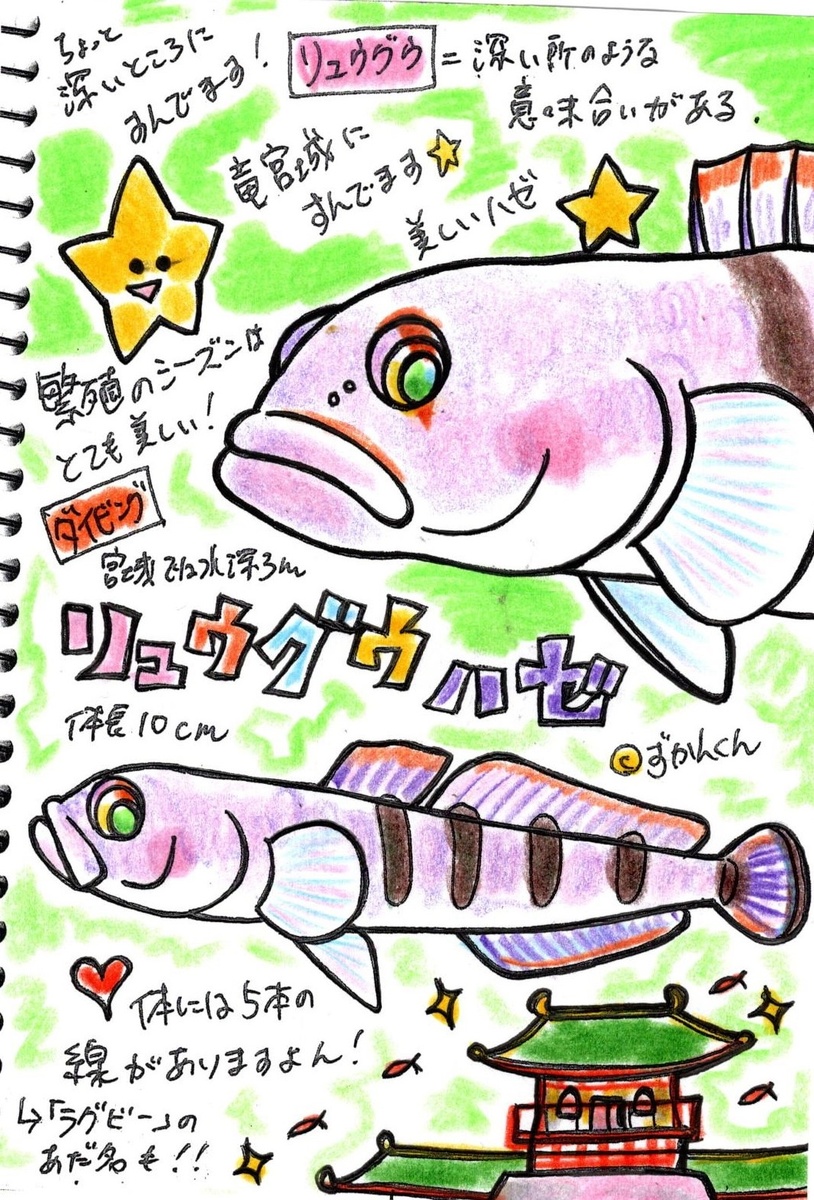 ちょっと
深いところに
すんでます!
リュウグウ = 深い所のような
意味合いがある.
竜宮城に
すんでます
美しいハゼ
繁殖のシーズンは
とても美しい!
ダイビング
宮城では水深3m
リュウグウハゼ
体長10cm
©ずかんくん
体には5本の
線がありますよん!
↳「ラグビー」の
あだ名も!!